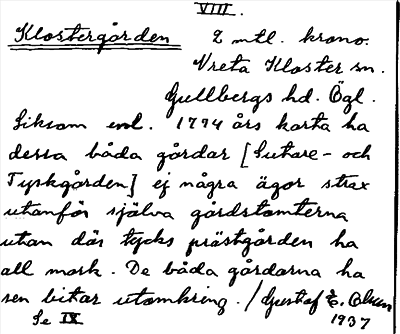 VIII.
Klostergården 2 mtl. krono.
Vreta Kloster sn.
Gullbergs hd. Ögl.
Liksom enl. 1774 års karta ha
dessa båda gårdar [Sutare- och
Tyskgården] ej några ägor strax
utanför själva gårdstomterna
utan där tycks prästgården ha
all mark. De båda gårdarna ha
sen bitar utomkring. / Gustaf E. Olsson
Se IX 1937